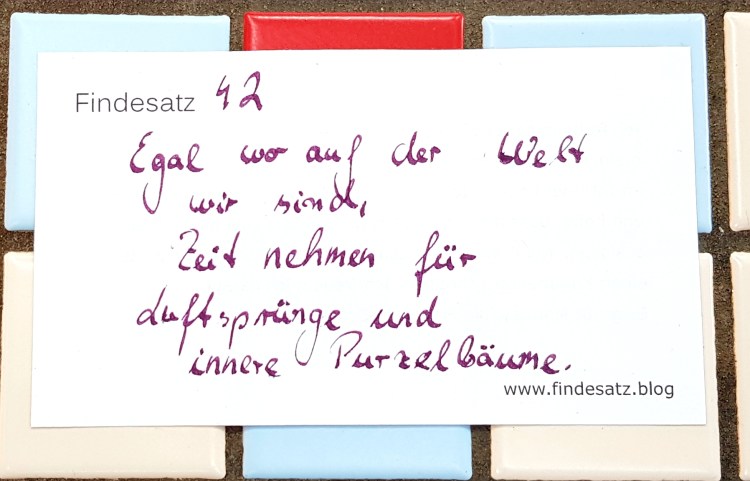 Findesatz 42
Egal wo auf der Welt
wir sind,
Zeit nehmen für
Luftsprünge und
innere Purzelbäume.
www.findesatz.blog